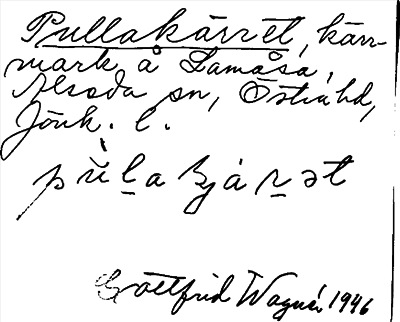 Pullakärret, kärr-
mark å Lamåsa,
Alseda sn, Östra hd,
Jönk. l.
pùl̲a ʒjár̲ət
Gottfrid Wagnér 1946